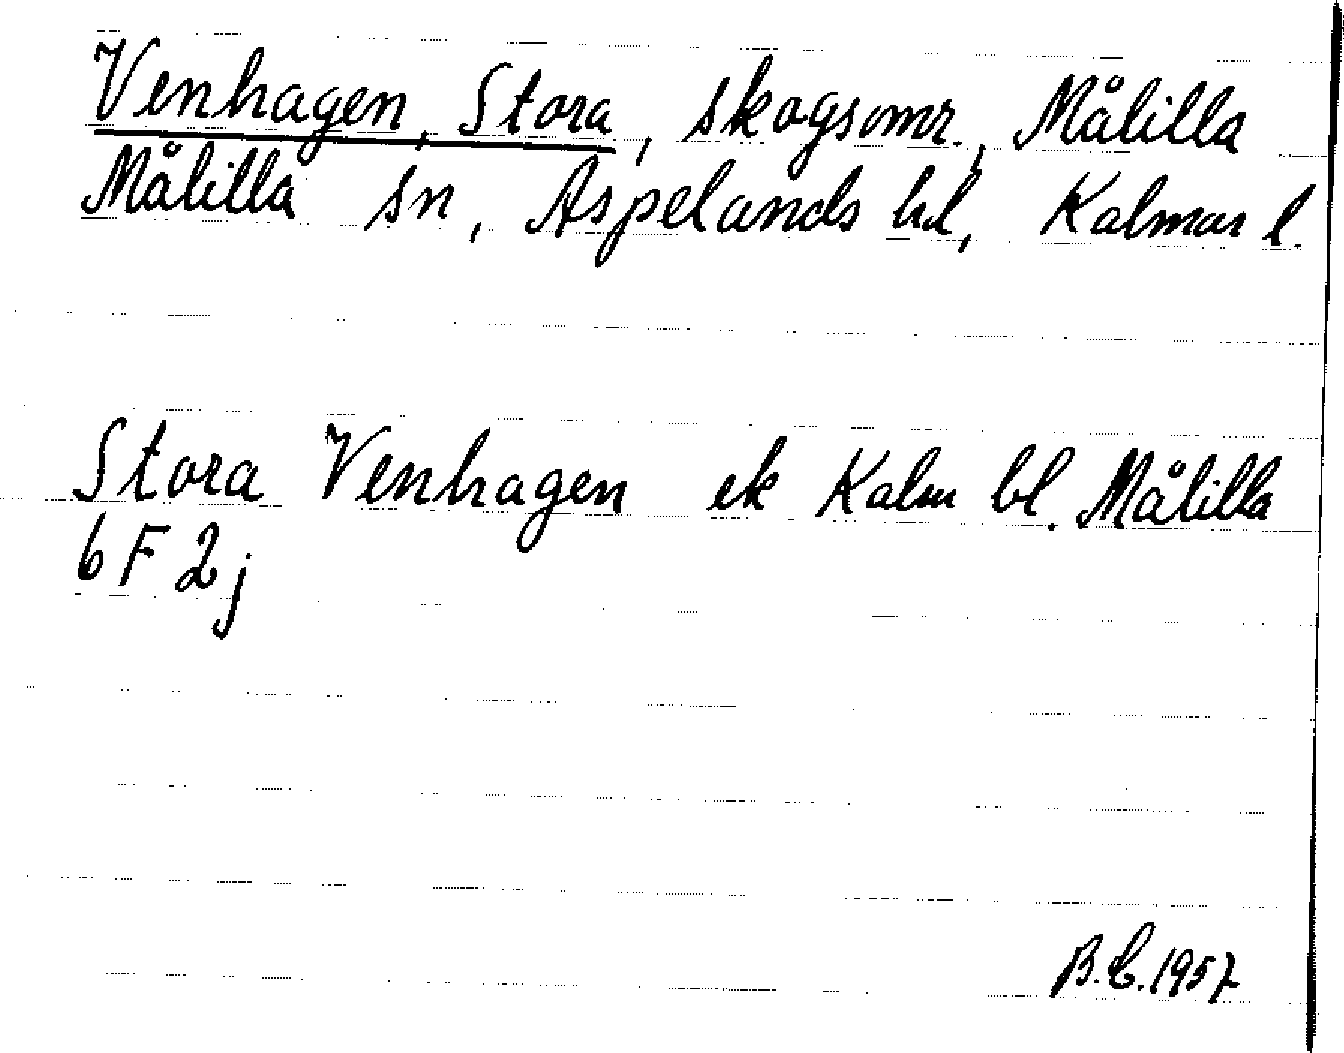 Venhagen, Stora, skogsomr., Målilla
Målilla sn, Aspelands hd, Kalmar l.
Stora Venhagen ek Kalm bl. Målilla
6F2j
B.C. 1957